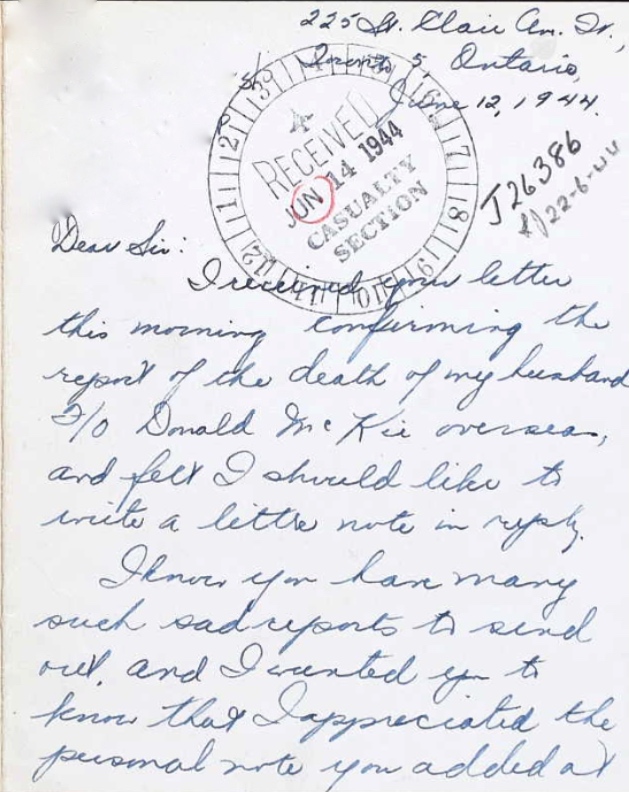 225 St. Clair Av. W.,
Toronto 5, Ontario,
June 12, 1944.
RECEIVED
JUN 14 1944
CASUALTY
SECTION
J26386
22-6-44
Dear Sir:
I received your letter
this morning confirming the
report of the death of my husband
F/O Donald McKie overseas,
and felt I should like to
write a little note in reply.
I know you have many
such sad reports to send
out, and I wanted you to
know that I appreciated the
personal note you added at